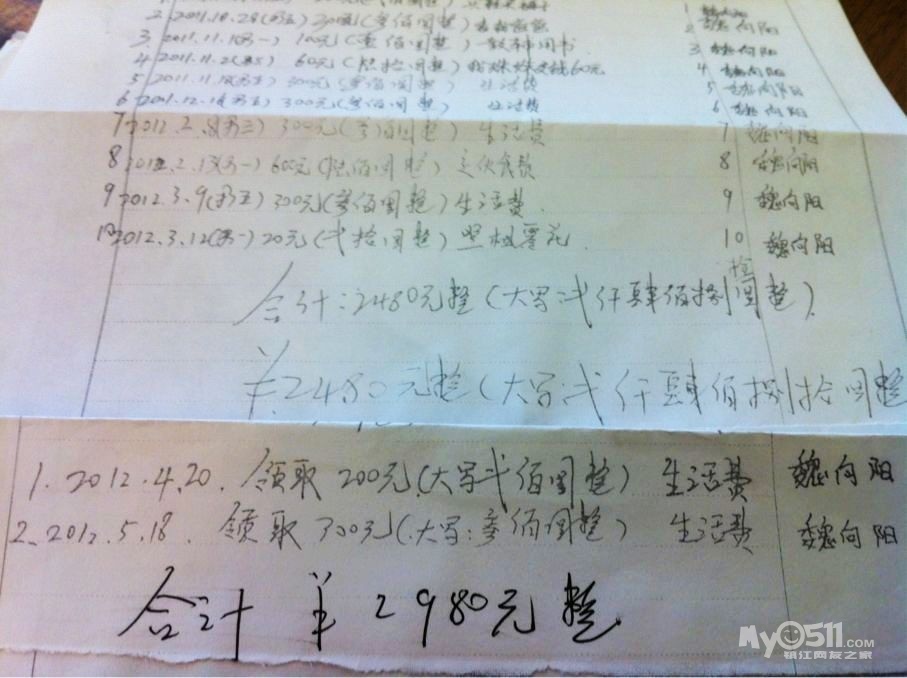 2. 2011.10.28(周五) 200元(贰佰圆整) 魏向阳
3. 2011.11.1(周一) 100元(壹佰圆整) 3 魏向阳
4 2011.11.2(周三) 60元(陆拾圆整) 60元 4 魏向阳
5 2011.11.18(周五) 300元(叁佰圆整) 生活费 5 魏向阳
6 2011.12.16(周五) 300元(叁佰圆整) 生活费 6 魏向阳
7 2012.2.8(周三) 300元(叁佰圆整) 生活费 7 魏向阳
8 2012.2.13(周一) 600元(陆佰圆整) 交伙食费 8 魏向阳
9 2012.3.9(周五) 300元(叁佰圆整) 生活费. 9 魏向阳
10 2012.3.12(周一) 20元(贰拾圆整) 10 魏向阳
合计:2480元整(大写:贰仟肆佰捌拾圆整)
¥:2480元整(大写:贰仟肆佰捌拾圆整
1. 2012.4.20. 领取200元(大写贰佰圆整) 生活费 魏向阳
2. 2012.5.18. 领取300元(大写:叁佰圆整) 生活费 魏向阳
合计 ¥2980元整
My0511.COM
镇江网友之家